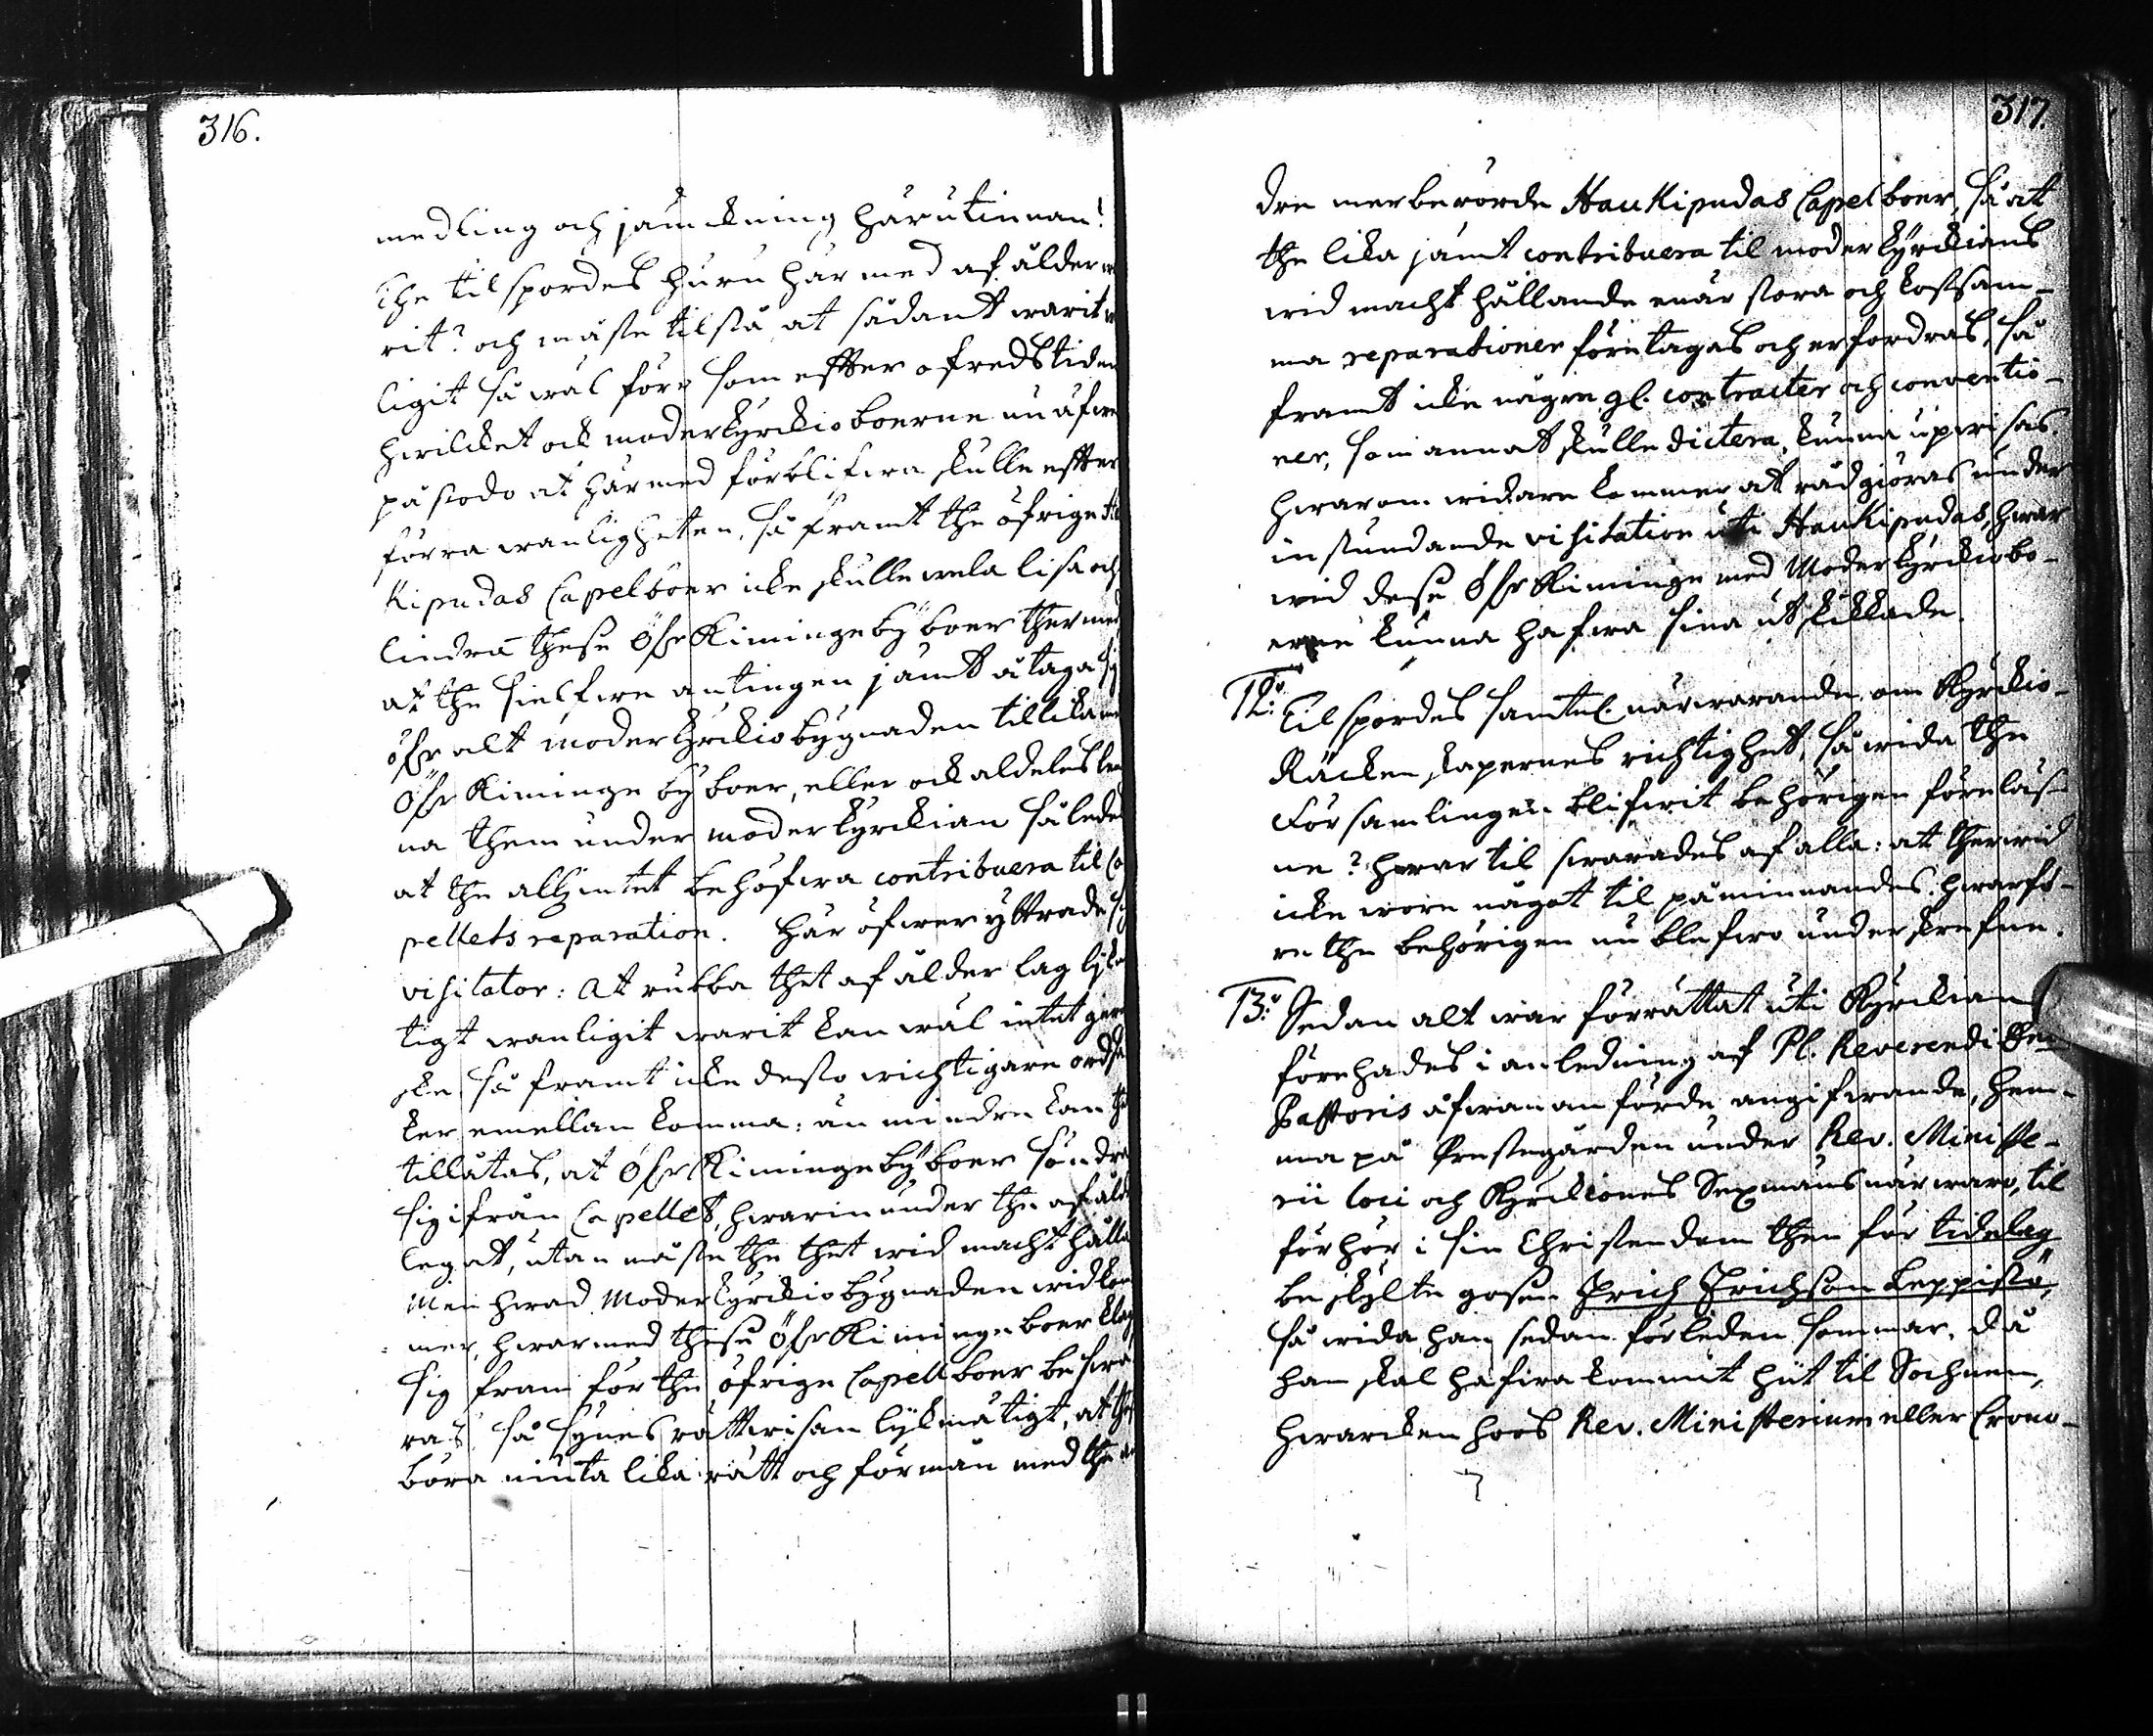 316.
medling och jämckning härutinnan!
The tilspordes huru här med af ålder
rit? och måste tilstå at sådant warit
ligit så wäl före som effter ofredstiden
hwilcket ock moderkyrckioboerne nu äfwen
påstodo at här med förblifwa skulle effter
förra wanligheten, så framt the öfrige
Kipudas Capelboer icke skulle wela lisa och
lindra these Öfr Kiminge by boer ther med
at the sielfwe antingen jämt åtaga sig
öfr alt moderkyrckiobygnaden tillika
Öfr Kiminge by boer, eller ock aldeles
na them under moderkyrckian således
at the alsintet behöfwa contribuera til Ca
pellets reparation. Här öfwer yttrade sig
visitator: At rubba thet af ålder lag
tigt wanligit warit kan wäl intet
ske, så framt icke desto wichtigare
ker emellan komma: än mindre kan the
tillåtas, at Öfr Kiminge by boer söndra
sig ifrån Capellet, hwarinunder the af
legat, utan måste the thet wid macht hålla
Men hwad Moderkyrckiobygnaden widkom
mer, hwarmed these Öfr Kiminge boer klag
sig fram för the öfrige Capellboer beswä
ras, så synes rättwisan lykmätigt, at the
böra niuta lika rätt och förmån med the
317.
dre merberörde Haukipudas Capelboer, så at
the lika jämt contribuera til moderkyrckians
wid macht hållande enär stora och kostsam-
ma reparationer företagas och erfordras, så
framt icke några gl. contracter och conventio-
ner, som annat skulle dictera, kunna upwisas.
Hwarom widare kommer att rådgiöras under
instundande visitation uti Haukipudas, hwar
wid dese Öfr Kiminge med Moderkyrckiobo-
erne kunna hafwa sina utskickade.
12:o Tilspordes samtel. närwarande om Kyrckio-
Räckenskapernes richtighet, så wida the
Församlingen blifwit behörigen föreläs-
ne? hwartil swarades af alla: at therwid
icke wore något til påminnandes. Hwarfö-
re the behörigen nu blefwo underskrefne.
13:o Sedan alt war förrättat uti Kyrckian
förehades i anledning af Pl. Reverendi Dni
Pastoris åfwananförde angifwande, hem-
ma på Prestegården under Rev. Ministe-
rii loci och Kyrckiones Sexmäns närwaro, til
förhör i sin Christendom then för tidelag
beskylte gosen Erich Erichson Leppistö,
så wida han sedan förleden sommar, då
han skal hafwa kommit hit til Sochnen,
hwarcken hoos Rev. Ministerium eller Crono-